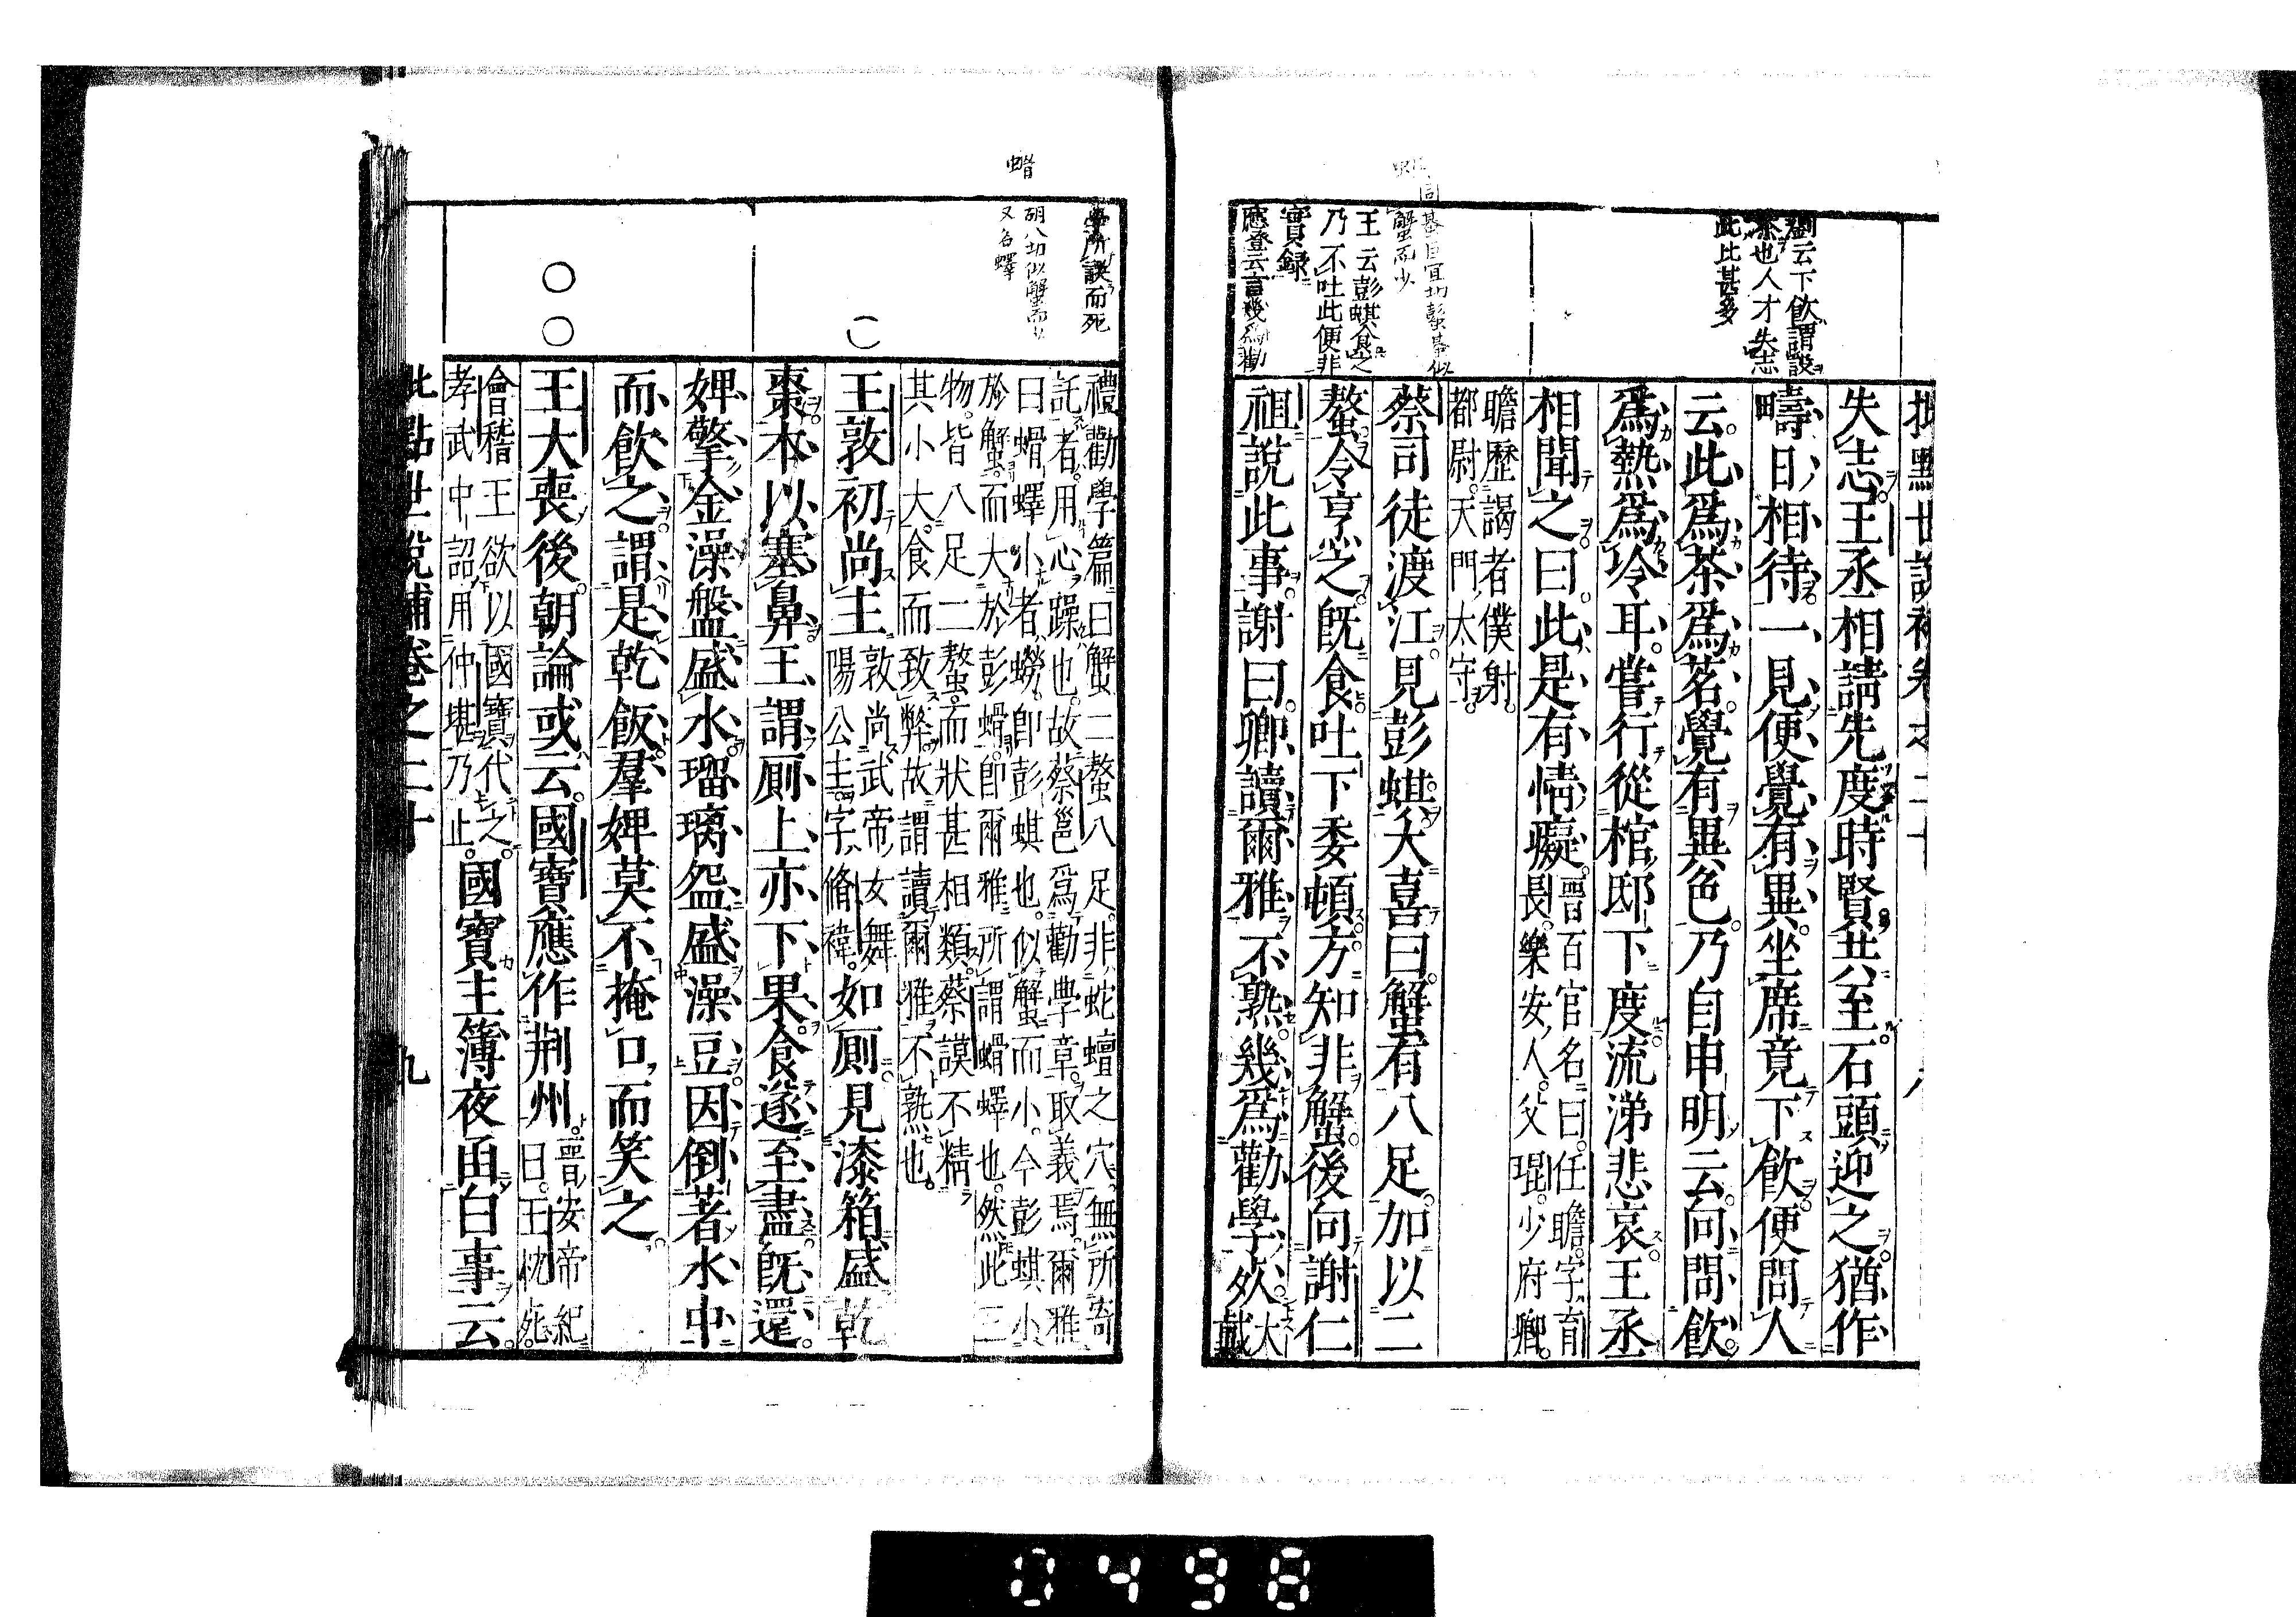 批點世說補卷之二十
劉云下飲謂設
茶也人才失志
此比甚多
失志王丞相請先度時賢共至石頭迎之猶作
疇日相待一見便覺有異坐席竟下飲便問人
云此爲茶爲茗覺有異色乃自申明云向問飲
爲熱爲冷耳嘗行從棺邸下度流涕悲哀王丞
相聞之曰此是有情癡
晉百官名曰任瞻字育
長樂安人父琨少府卿
瞻歷謁者僕射
都尉天門太守
同基巨宜切蟛基似
蟹而少
王云彭蜞食之
乃不吐此便非
實録
應登云言幾爲勸
學所誤而死
蔡司徒渡江見彭蜞大喜曰蟹有八足加以二
螯令烹之旣食吐下委頓方知非蟹後向謝仁
祖說此事謝曰卿讀爾雅不熟幾爲勸學死
大
戴
蝟
胡八切似蟹而少
又名蟬
禮勸學篇曰蟹二螯八足非蛇蟺之穴無所寄
託者用心躁也故蔡邕爲勸學章取義焉爾雅
曰蝟蠌小者蟧卽彭蜞也似蟹而小今彭蜞小
於蟹而大於彭蝟卽爾雅所謂蝟蠌也然此三
物皆八足二螯而狀甚相類蔡謨不精
其小大食而致弊故謂讀爾雅不熟也
○
王敦初尚主
敦尚武帝女舞
陽公主字脩褘
如厠見漆箱盛乾
棗本以塞鼻王謂厠上亦下果食遂至盡旣還
婢擎金澡盤盛水瑠璃盌盛澡豆因倒著水中
而飲之謂是乾飯羣婢莫不掩口而笑之
○○
王大喪後朝論或云國寶應作荆州
晉安帝紀
曰王忱死
會稽王欲以國寶代之
孝武中詔用仲堪乃止
國寶主簿夜函白事云
批點世說補卷之二十
九
0498